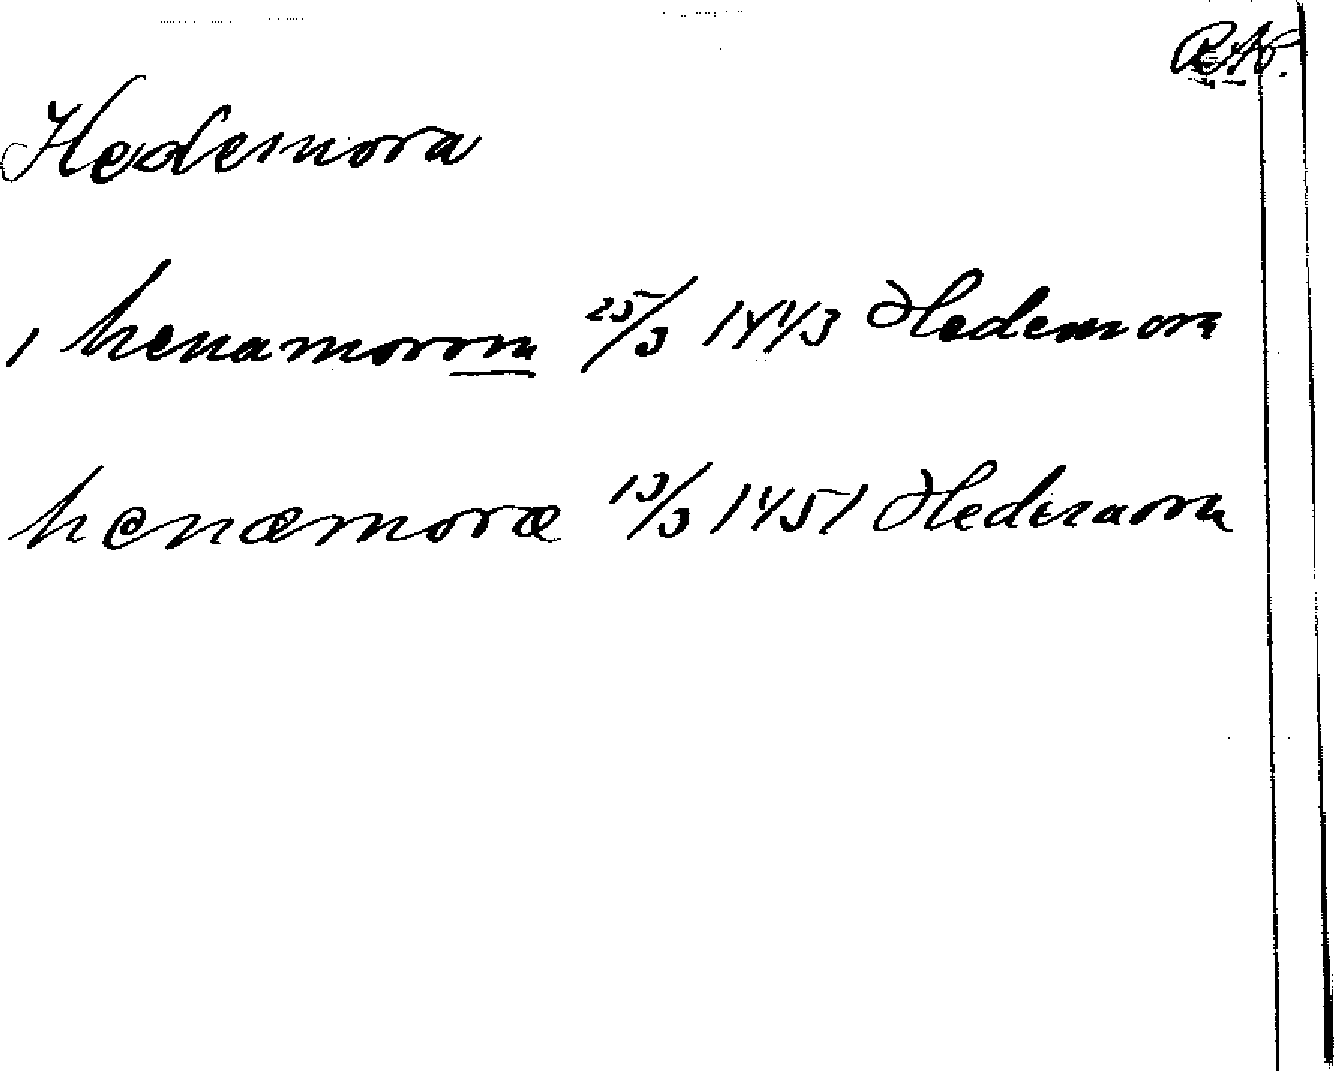 Hedemora
i henamorom 25/3 1443 Hedemora
henæmoræ 13/3 1451 Hedemora